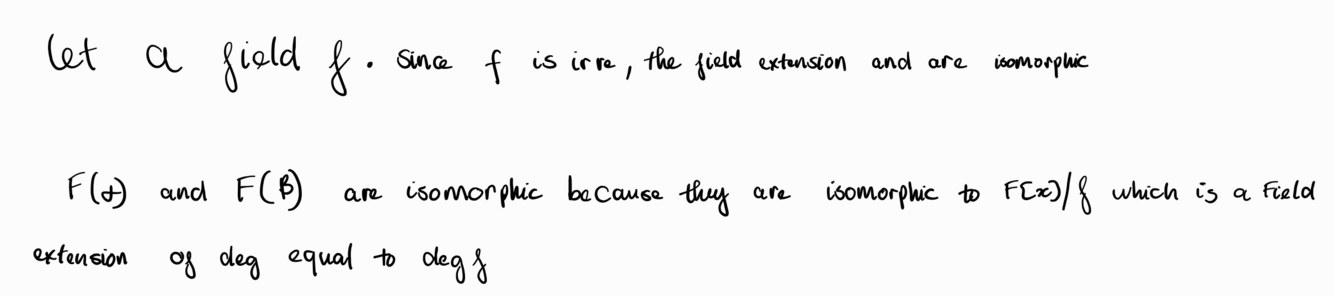 let a field f. since f is irre, the field extension and are isomorphic
F(α) and F(β) are isomorphic because they are isomorphic to F[x]/f which is a Field
extension of deg equal to deg f